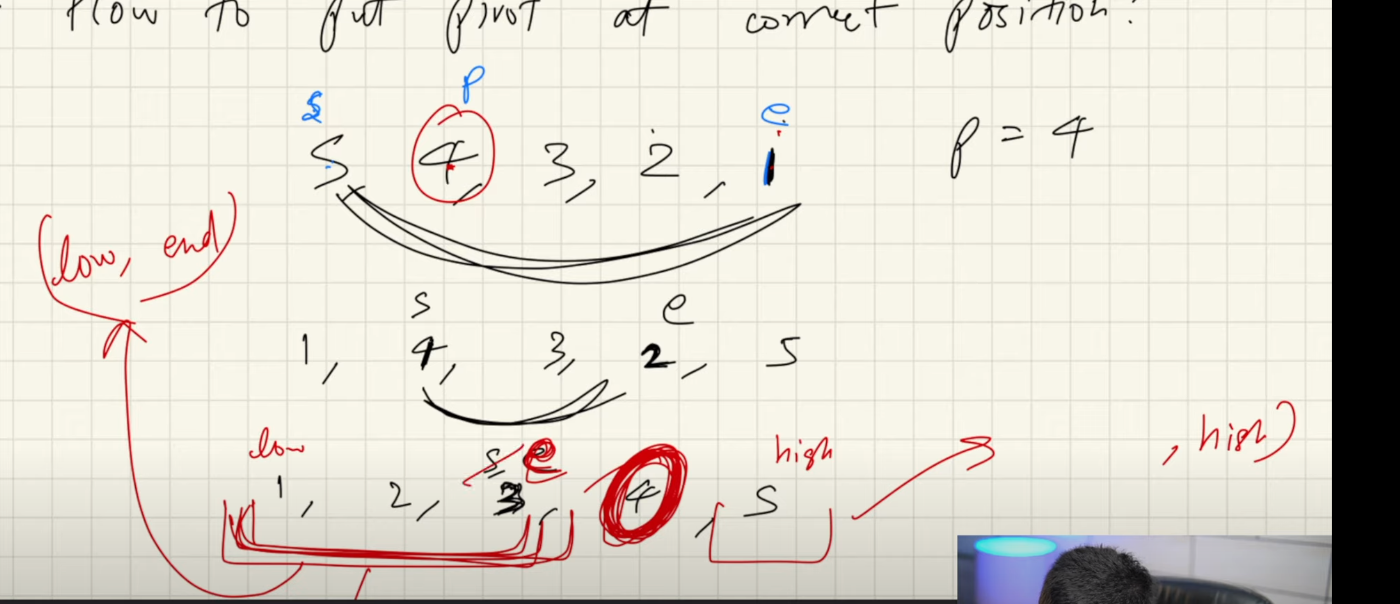 How to put pivot at correct position?
s p e
5 4, 3, 2, 1
p = 4
(low, end)
s e
1, 4, 3, 2, 5
low s e high
, high)
1, 2, 3, 4, 5